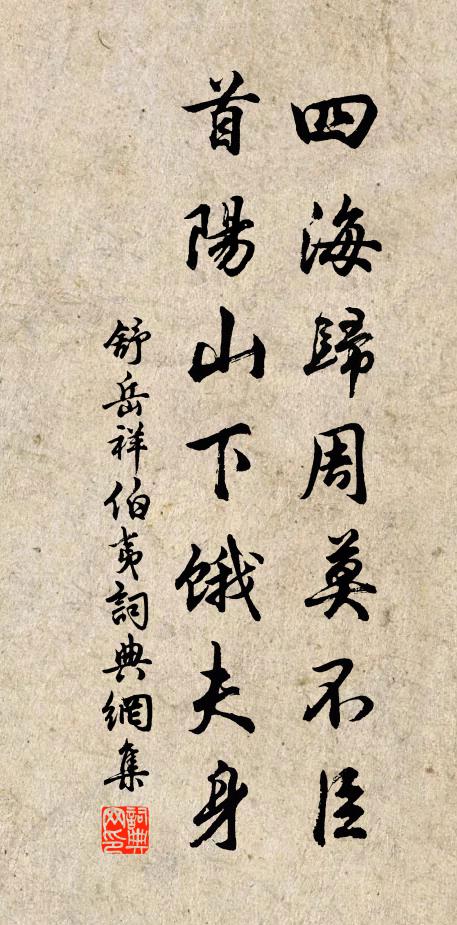 四海歸周莫不臣
首陽山下餓夫身
舒岳祥伯夷詞典網集
詞典网印